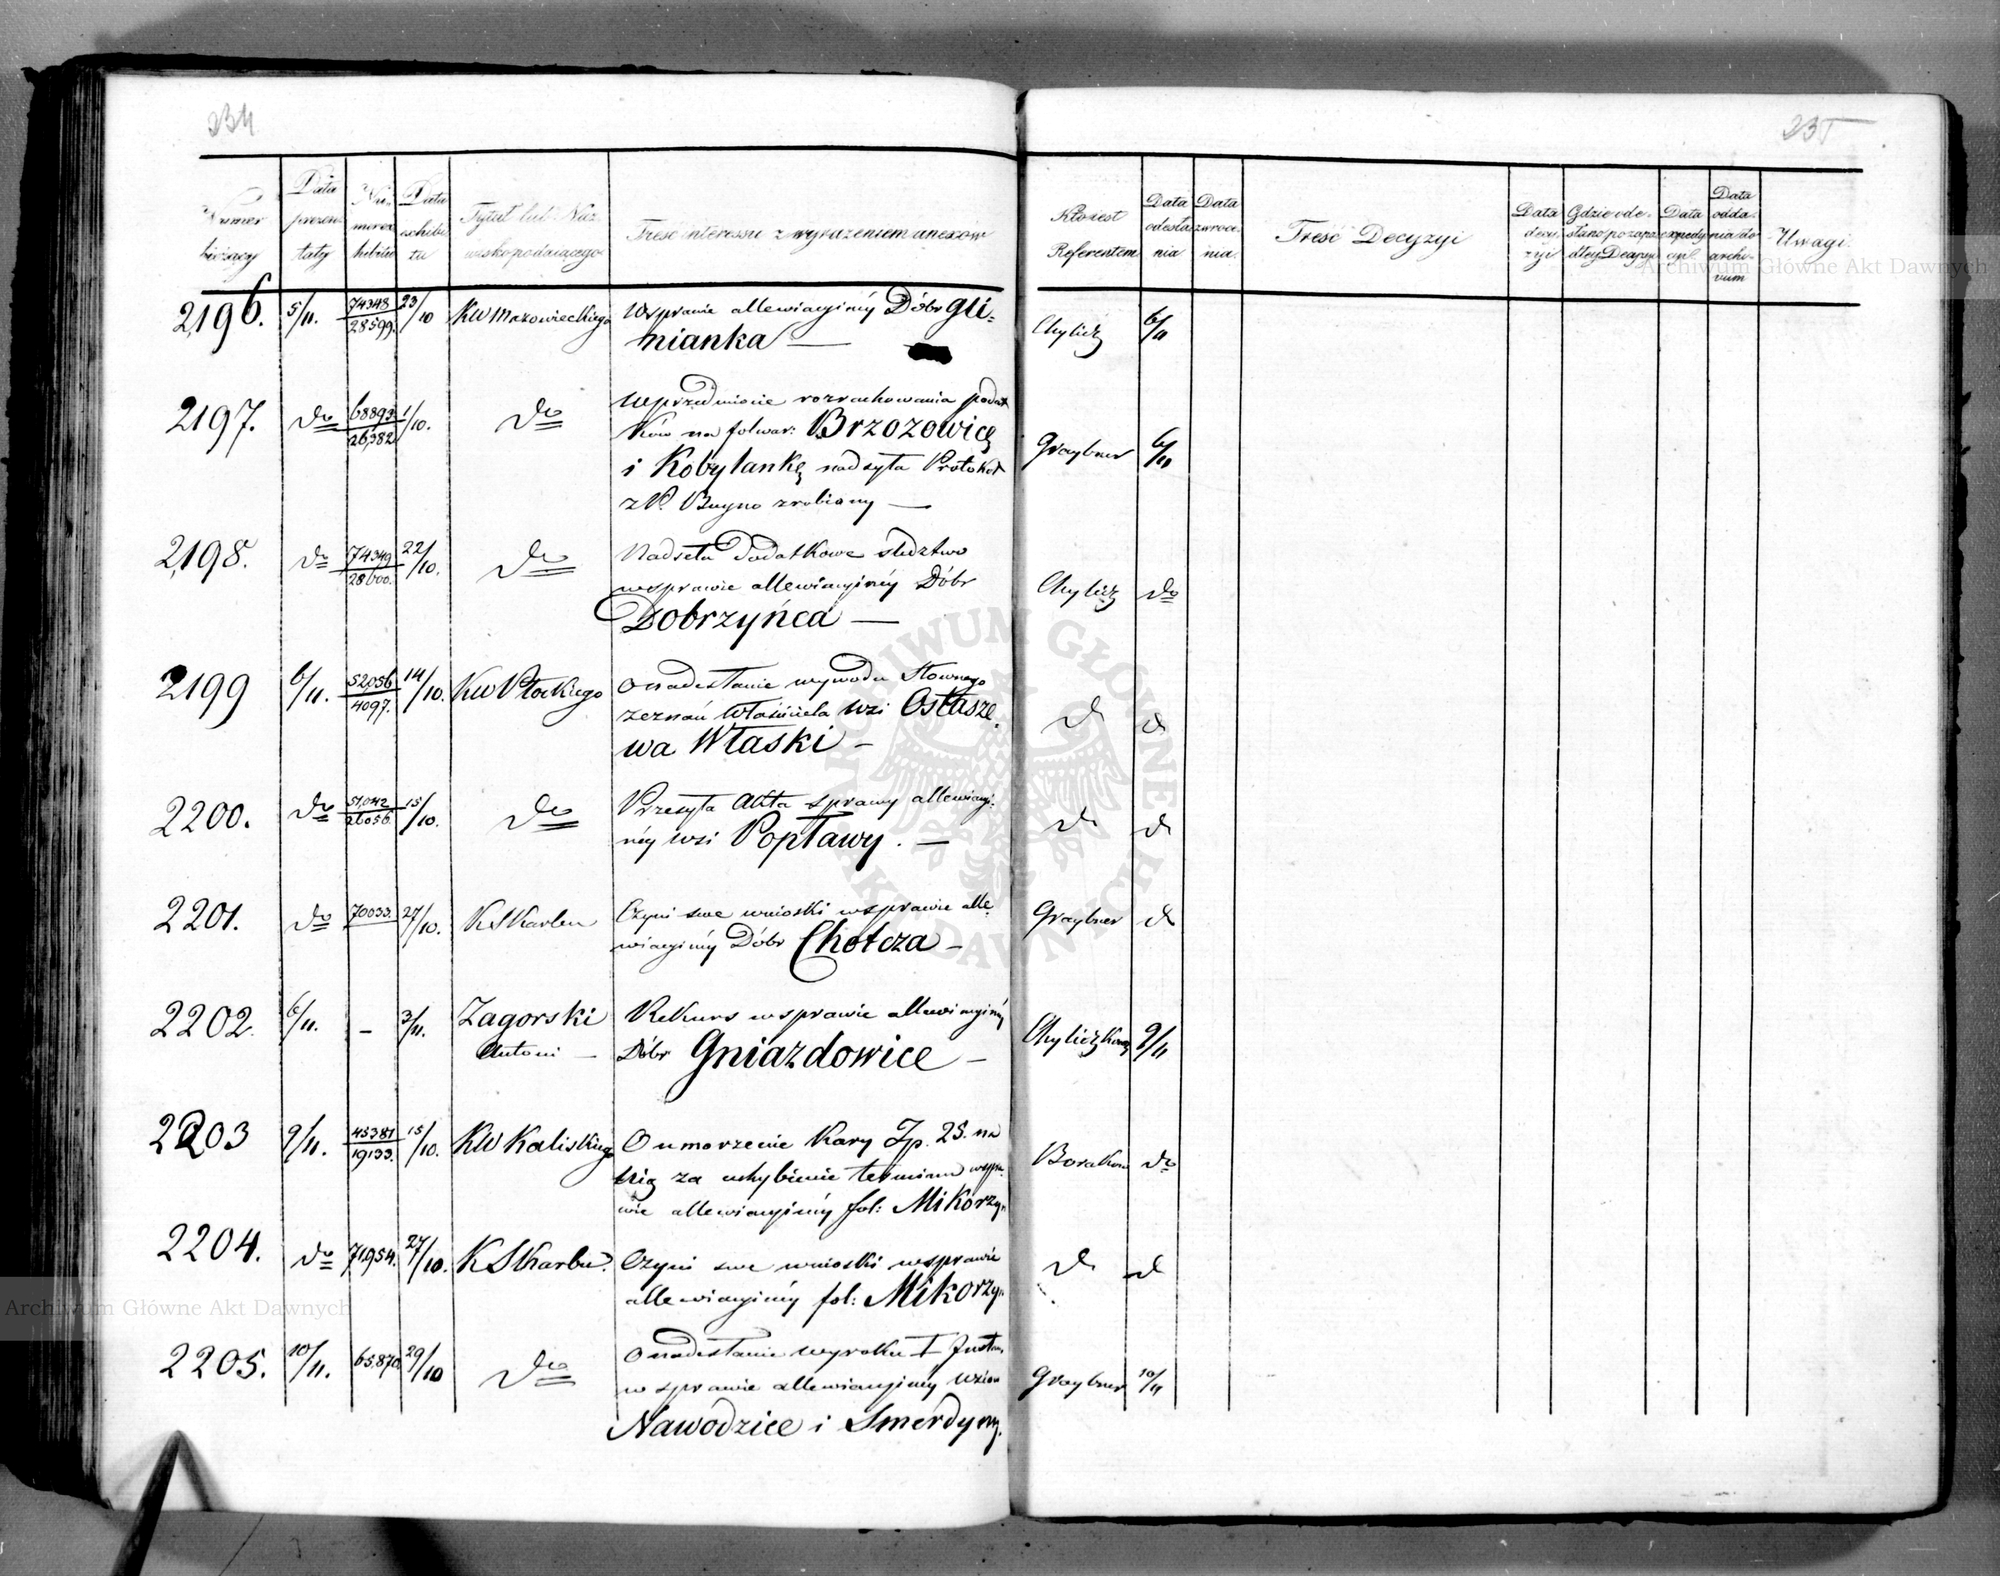 234
235
Numer bieżący
Data prezentaty
Numer exhibitu
Data exhibitu
Tytuł lub Nazwisko podaiącego
Treść interessu z wyrażeniem anexów
Kto iest Referentem
Data odesłania
Data zwrócenia
Treść Decyzyi
Data decyzyi
Gdzie odesłano po zapadłey Decyzyi
Data expedycyi
Data oddania do archivum
Uwagi
2196. 5/11. 74348/28599. 23/10 KW Mazowieckiego w sprawie allewiacyjnéy Dóbr Gli=
nianka — Chylicz 6/11
2197. do 68893/26,382 1/10. do w przedmiocie rozrachowania podat
ków na folwar: Brzozowicę
i Kobylankę nadsyła Protokół
z P. Buyno zrobiony — Graybner 6/11
2198. do 74349/28600. 22/10. do Nadseła dodatkowe śledztwo
w sprawie allewiacyjnéy Dóbr
Dobrzyńca — Chylicz do
2199 6/11. 52056/4097. 14/10. KW Płockiego o nadesłanie wywodu słownego
zeznań właściciela wsi Ostasze=
wa Właski — do do
2200. do 51,042/26056. 15/10. do Przesyła akta sprawy allewiacyj=
néy wsi Popławy. — do do
2201. do 70033. 27/10. K Skarbu Czyni swe wnioski w sprawie alle=
wiacyjnéy Dóbr Chotcza — Graybner do
2202. 6/11. — 3/11. Zagorski
Antoni — Rekurs w sprawie allewiacyjnéy
Dóbr Gniazdowice — 9/11
2203 9/11. 45381/19133. 15/10. KW Kaliskiego O umorzenie kary Zp. 25. na
za uchybienie terminu w spra=
wie allewiacyjnéy fol: Mikorzyn do
2204. do 71954. 27/10. K Skarbu. Czyni swe wnioski w sprawie
allewiacyjnéy fol: Mikorzyn do do
2205. 10/11. 65,870 29/10 do O nadesłanie wyroku I Instan
w sprawie allewiacyjnéy
Nawodzice i Smerdyny. Graybner 10/11
Archiwum Główne Akt Dawnych
Archiwum Główne Akt Dawnych
ARCHIWUM GŁÓWNE AKT DAWNYCH